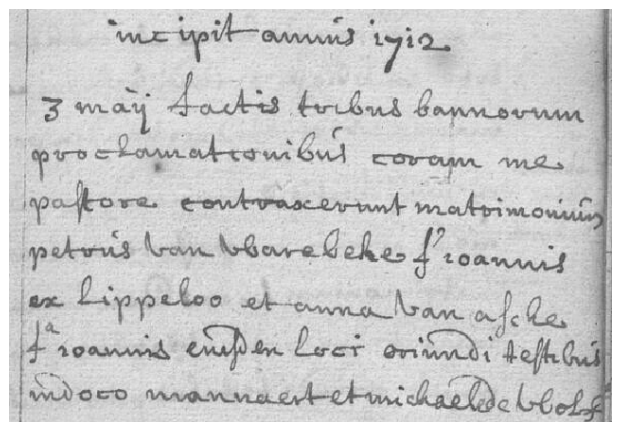 incipit annus 1712
3 maij factis tribus bannorum
proclamationibus coram me
pastore contraxerunt matrimonium
petrus van Warebeke fs ioannis
ex Lippeloo et anna van assche
fa ioannis eiusdem loci oriundi testibus
iudoco mannaert et michaele de Wolf